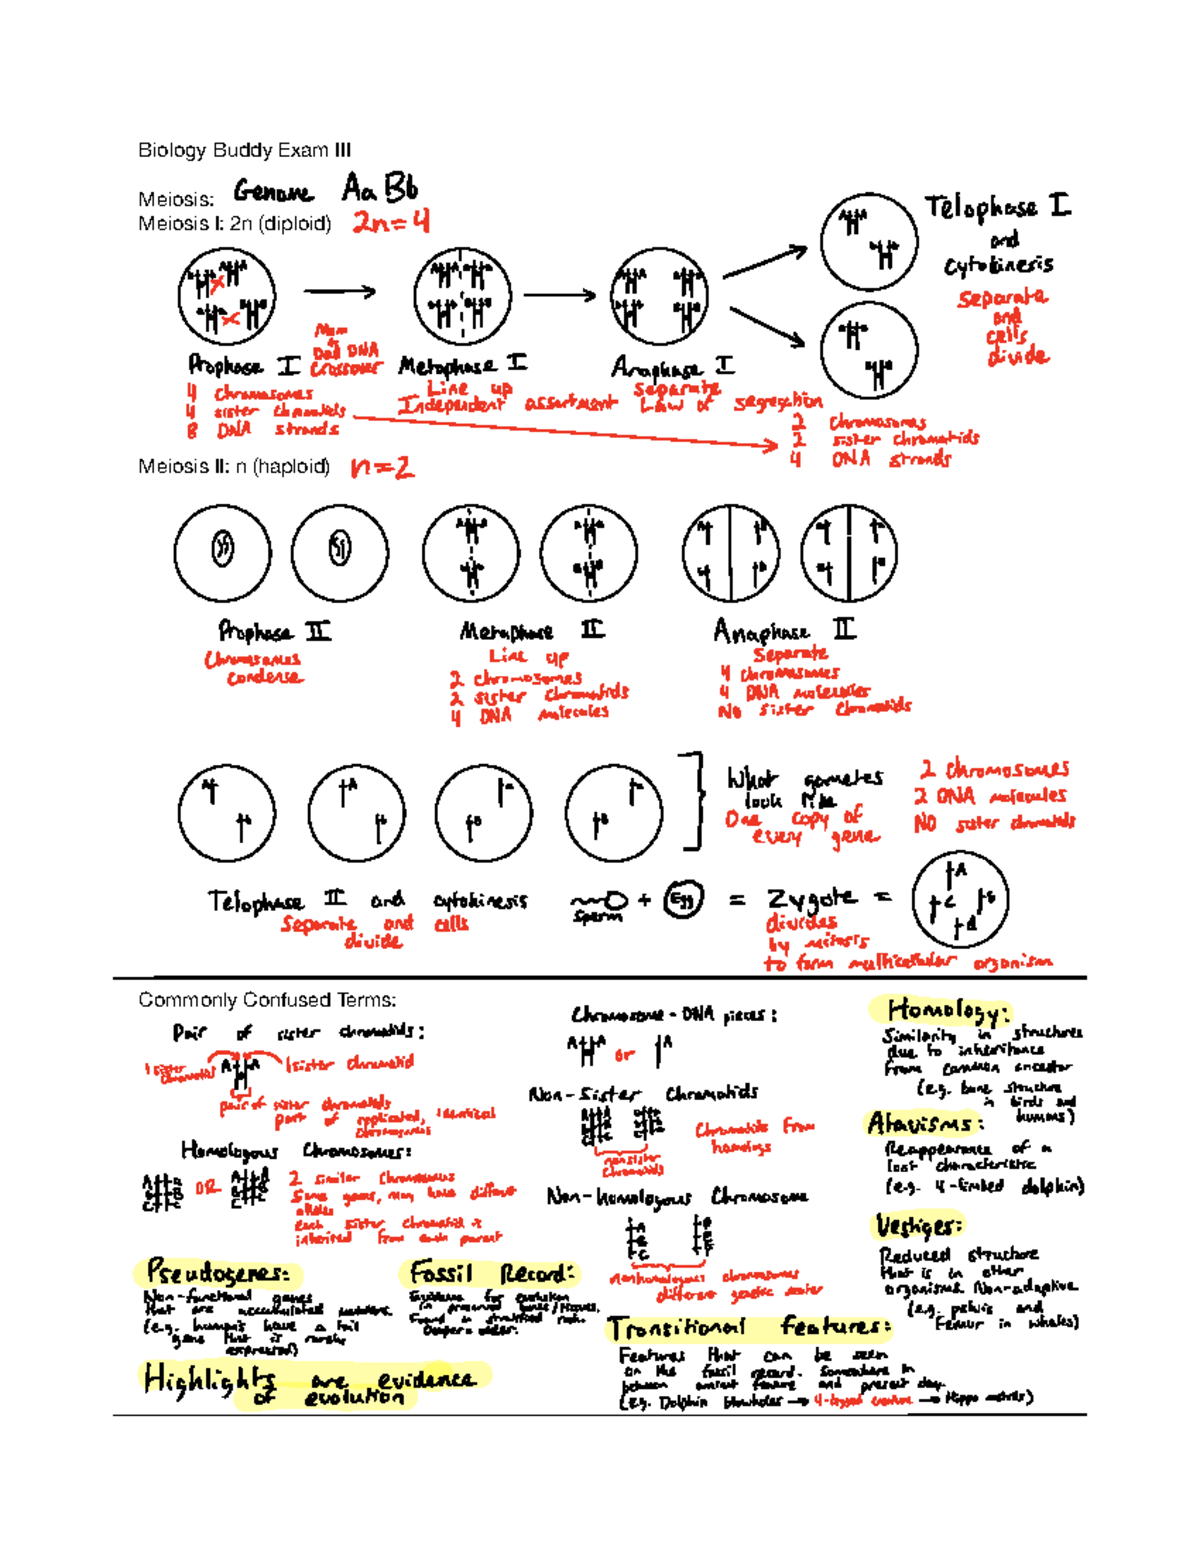 Biology Buddy Exam III
Meiosis: Genome Aa Bb
Meiosis I: 2n (diploid) 2n=4
Telophase I
and
cytokinesis
Separate
and
cells
divide
Prophase I
Mom
&
Dad DNA
Crossover
4 chromosomes
4 sister chromatids
8 DNA strands
Metaphase I
Line up
Independent assortment
Anaphase I
Separate
Law of segregation
2 chromosomes
2 sister chromatids
4 DNA strands
Meiosis II: n (haploid) n=2
Prophase II
Chromosomes
condense
Metaphase II
Line up
2 chromosomes
2 sister chromatids
4 DNA molecules
Anaphase II
Separate
4 chromosomes
4 DNA molecules
No sister chromatids
What gametes
look like
One copy of
every gene
2 chromosomes
2 DNA molecules
NO sister chromatids
Telophase II and cytokinesis
Separate and cells
divide
sperm + Egg = Zygote =
divides
by mitosis
to form multicellular organism
Commonly Confused Terms:
Pair of sister chromatids:
1 sister
chromatid
1 sister chromatid
pair of sister chromatids
part of replicated, identical
chromosomes
Homologous Chromosomes:
OR
2 similar chromosomes
Same genes, may have different
alleles
each sister chromatid is
inherited from each parent
Chromosome - DNA pieces:
or
Non-Sister Chromatids
nonsister
chromatids
Chromatids from
homologs
Non-homologous Chromosome
nonhomologous chromosomes
different genetic
Homology:
Similarity in structures
due to inheritance
from common ancestor
(e.g. bone structure
in birds and
humans)
Atavisms:
Reappearance of a
lost characteristic
(e.g. 4-limbed dolphin)
Vestiges:
Reduced structure
that is in other
organisms Non-adaptive
(e.g. pelvis and
Femur in whales)
Pseudogenes:
Non-functional genes
that are accumulated
(e.g. humans have a tail
gene that is rarely
expressed)
Fossil Record:
Evidence for evolution
in preserved bones/tissues.
Found in stratified rock.
Deeper = older.
Transitional features:
Features that can be seen
on the fossil record. Somewhere in
between ancient feature and present day.
(e.g. Dolphin blowholes → 4-legged creature → Hippo)
Highlights are evidence
of evolution